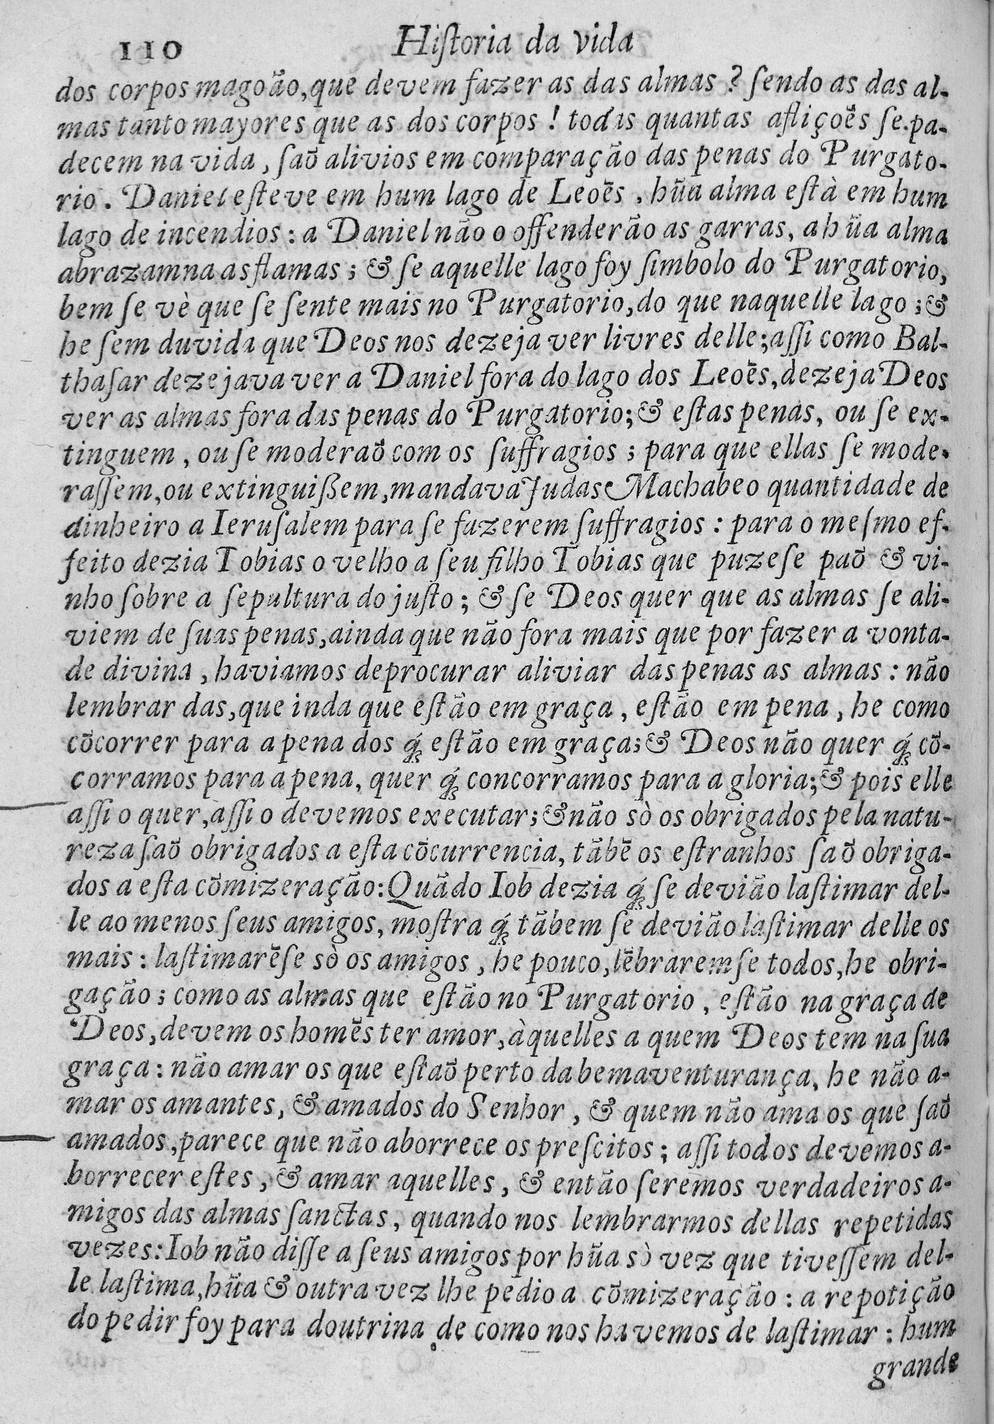 110 Hiſtoria da vida
dos corpos magoão, que devem fazer as das almas? ſendo as das al-
mas tanto mayores que as dos corpos! todas quantas afliçoẽs ſe pa-
decem na vida, ſaõ alivios em comparação das penas do Purgato-
rio. Daniel eſteve em hum lago de Leoẽs, hũa alma eſtà em hum
lago de incendios: a Daniel não o offenderão as garras, a hũa alma
abrazamna as flamas; & ſe aquelle lago foy ſimbolo do Purgatorio,
bem ſe vè que ſe ſente mais no Purgatorio, do que naquelle lago; &
he ſem duvida que Deos nos dezeja ver livres delle; aſſi como Bal-
thaſar dezejava ver a Daniel fora do lago dos Leoẽs, dezeja Deos
ver as almas fora das penas do Purgatorio; & eſtas penas, ou ſe ex-
tinguem, ou ſe moderaõ com os ſuffragios; para que ellas ſe mode-
raſſem, ou extinguißem, mandava Judas Machabeo quantidade de
dinheiro a Ieruſalem para ſe fazerem ſuffragios: para o meſmo ef-
feito dezia Tobias o velho a ſeu filho Tobias que puzeſe paõ & vi-
nho ſobre a ſepultura do juſto; & ſe Deos quer que as almas ſe ali-
viem de ſuas penas, ainda que não fora mais que por fazer a vonta-
de divina, haviamos deprocurar aliviar das penas as almas: não
lembrar das, que inda que eſtão em graça, eſtão em pena, he como
cõcorrer para a pena dos q́ eſtão em graça; & Deos não quer q́ cõ-
corramos para a pena, quer q́ concorramos para a gloria; & pois elle
aſſi o quer, aſſi o devemos executar; & não sò os obrigados pela natu-
reza ſaõ obrigados a eſta cõcurrencia, tãbẽ os eſtranhos ſaõ obriga-
dos a eſta cõmizeração: Quãdo Iob dezia q́ ſe devião laſtimar del-
le ao menos ſeus amigos, moſtra q́ tãbem ſe devião laſtimar delle os
mais: laſtimarẽſe sò os amigos, he pouco, lẽbraremſe todos, he obri-
gação; como as almas que eſtão no Purgatorio, eſtão na graça de
Deos, devem os homẽs ter amor, àquelles a quem Deos tem na ſua
graça: não amar os que eſtaõ perto da bemaventurança, he não a-
mar os amantes, & amados do Senhor, & quem não ama os que ſaõ
amados, parece que não aborrece os preſcitos; aſſi todos devemos a-
borrecer eſtes, & amar aquelles, & então ſeremos verdadeiros a-
migos das almas ſanctas, quando nos lembrarmos dellas repetidas
vezes: Iob não diſſe a ſeus amigos por hũa sò vez que tiveſſem del-
le laſtima, hũa & outra vez lhe pedio a cõmizeração: a repotição
do pedir foy para doutrina de como nos havemos de laſtimar: hum
grande